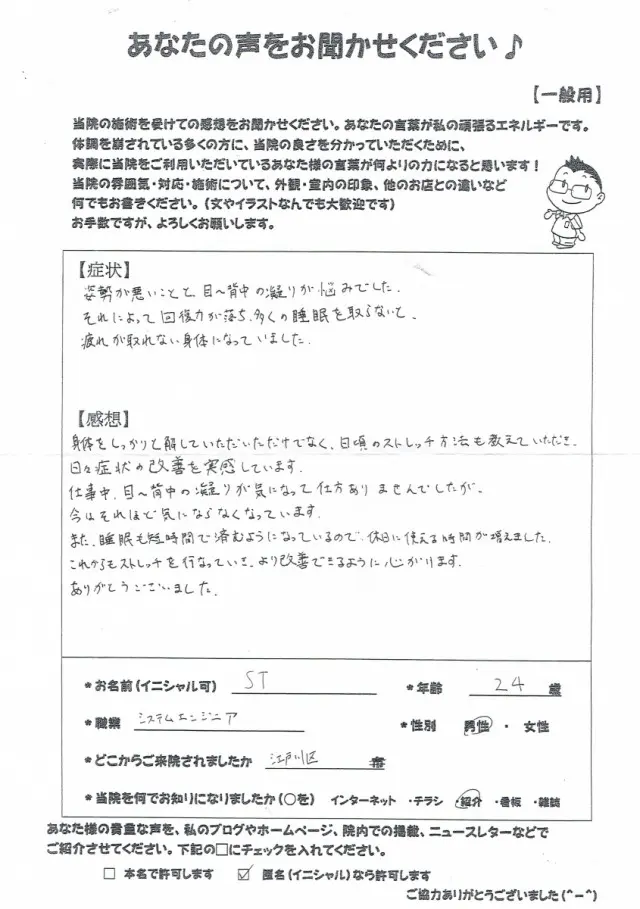 あなたの声をお聞かせください♪
【一般用】
当院の施術を受けての感想をお聞かせください。あなたの言葉が私の頑張るエネルギーです。
体調を崩されている多くの方に、当院の良さを分かっていただくために、
実際に当院をご利用いただいているあなた様の言葉が何よりの力になると思います！
当院の雰囲気・対応・施術について、外観・室内の印象、他のお店との違いなど
何でもお書きください。（文やイラストなんでも大歓迎です）
お手数ですが、よろしくお願いします。
【症状】
姿勢が悪いことと、目～背中の凝りが悩みでした。
それによって回復力が落ち、多くの睡眠を取らないと、
疲れが取れない身体になっていました。
【感想】
身体をしっかりと解していただいただけでなく、日頃のストレッチ方法も教えていただき、
日々症状の改善を実感しています。
仕事中、目～背中の凝りが気になって仕方ありませんでしたが、
今はそれほど気にならなくなっています。
また、睡眠も短時間で済むようになっているので、休日に使える時間が増えました。
これからもストレッチを行なっていき、より改善できるように心がけます。
ありがとうございました。
*お名前（イニシャル可） ST *年齢 24 歳
*職業 システムエンジニア *性別 男性・女性
*どこからご来院されましたか 江戸川区 市
*当院を何でお知りになりましたか（○を） インターネット ・チラシ ・紹介 ・看板 ・雑誌
あなた様の貴重な声を、私のブログやホームページ、院内での掲載、ニュースレターなどで
ご紹介させてください。下記の□にチェックを入れてください。
□ 本名で許可します ☑ 匿名（イニシャル）なら許可します
ご協力ありがとうございました（^－^）